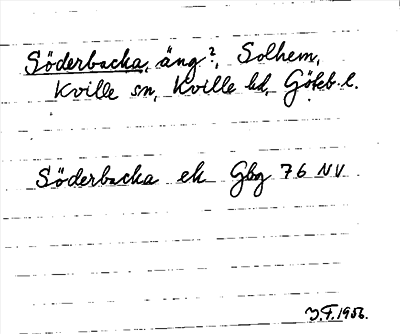 Söderbacka, äng?, Solhem,
Kville sn, Kville hd, Göteb. l.
Söderbacka ek Gbg 76 NV
J.F. 1956.